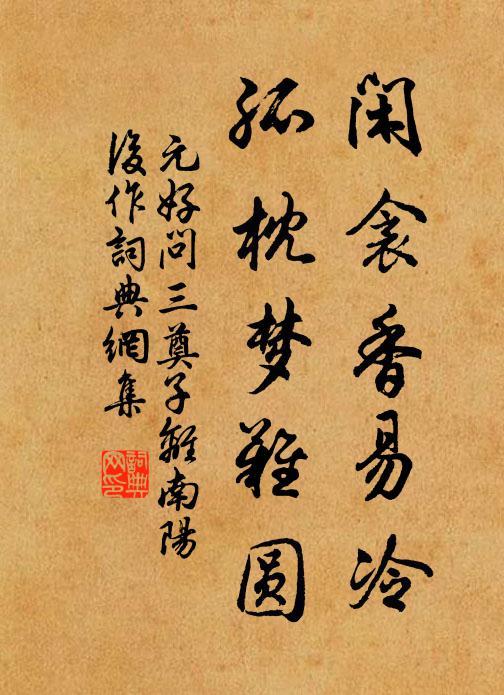 闲衾香易冷
孤枕梦難圆
元好问三奠子離南陽
後作詞典網集
詞典网印